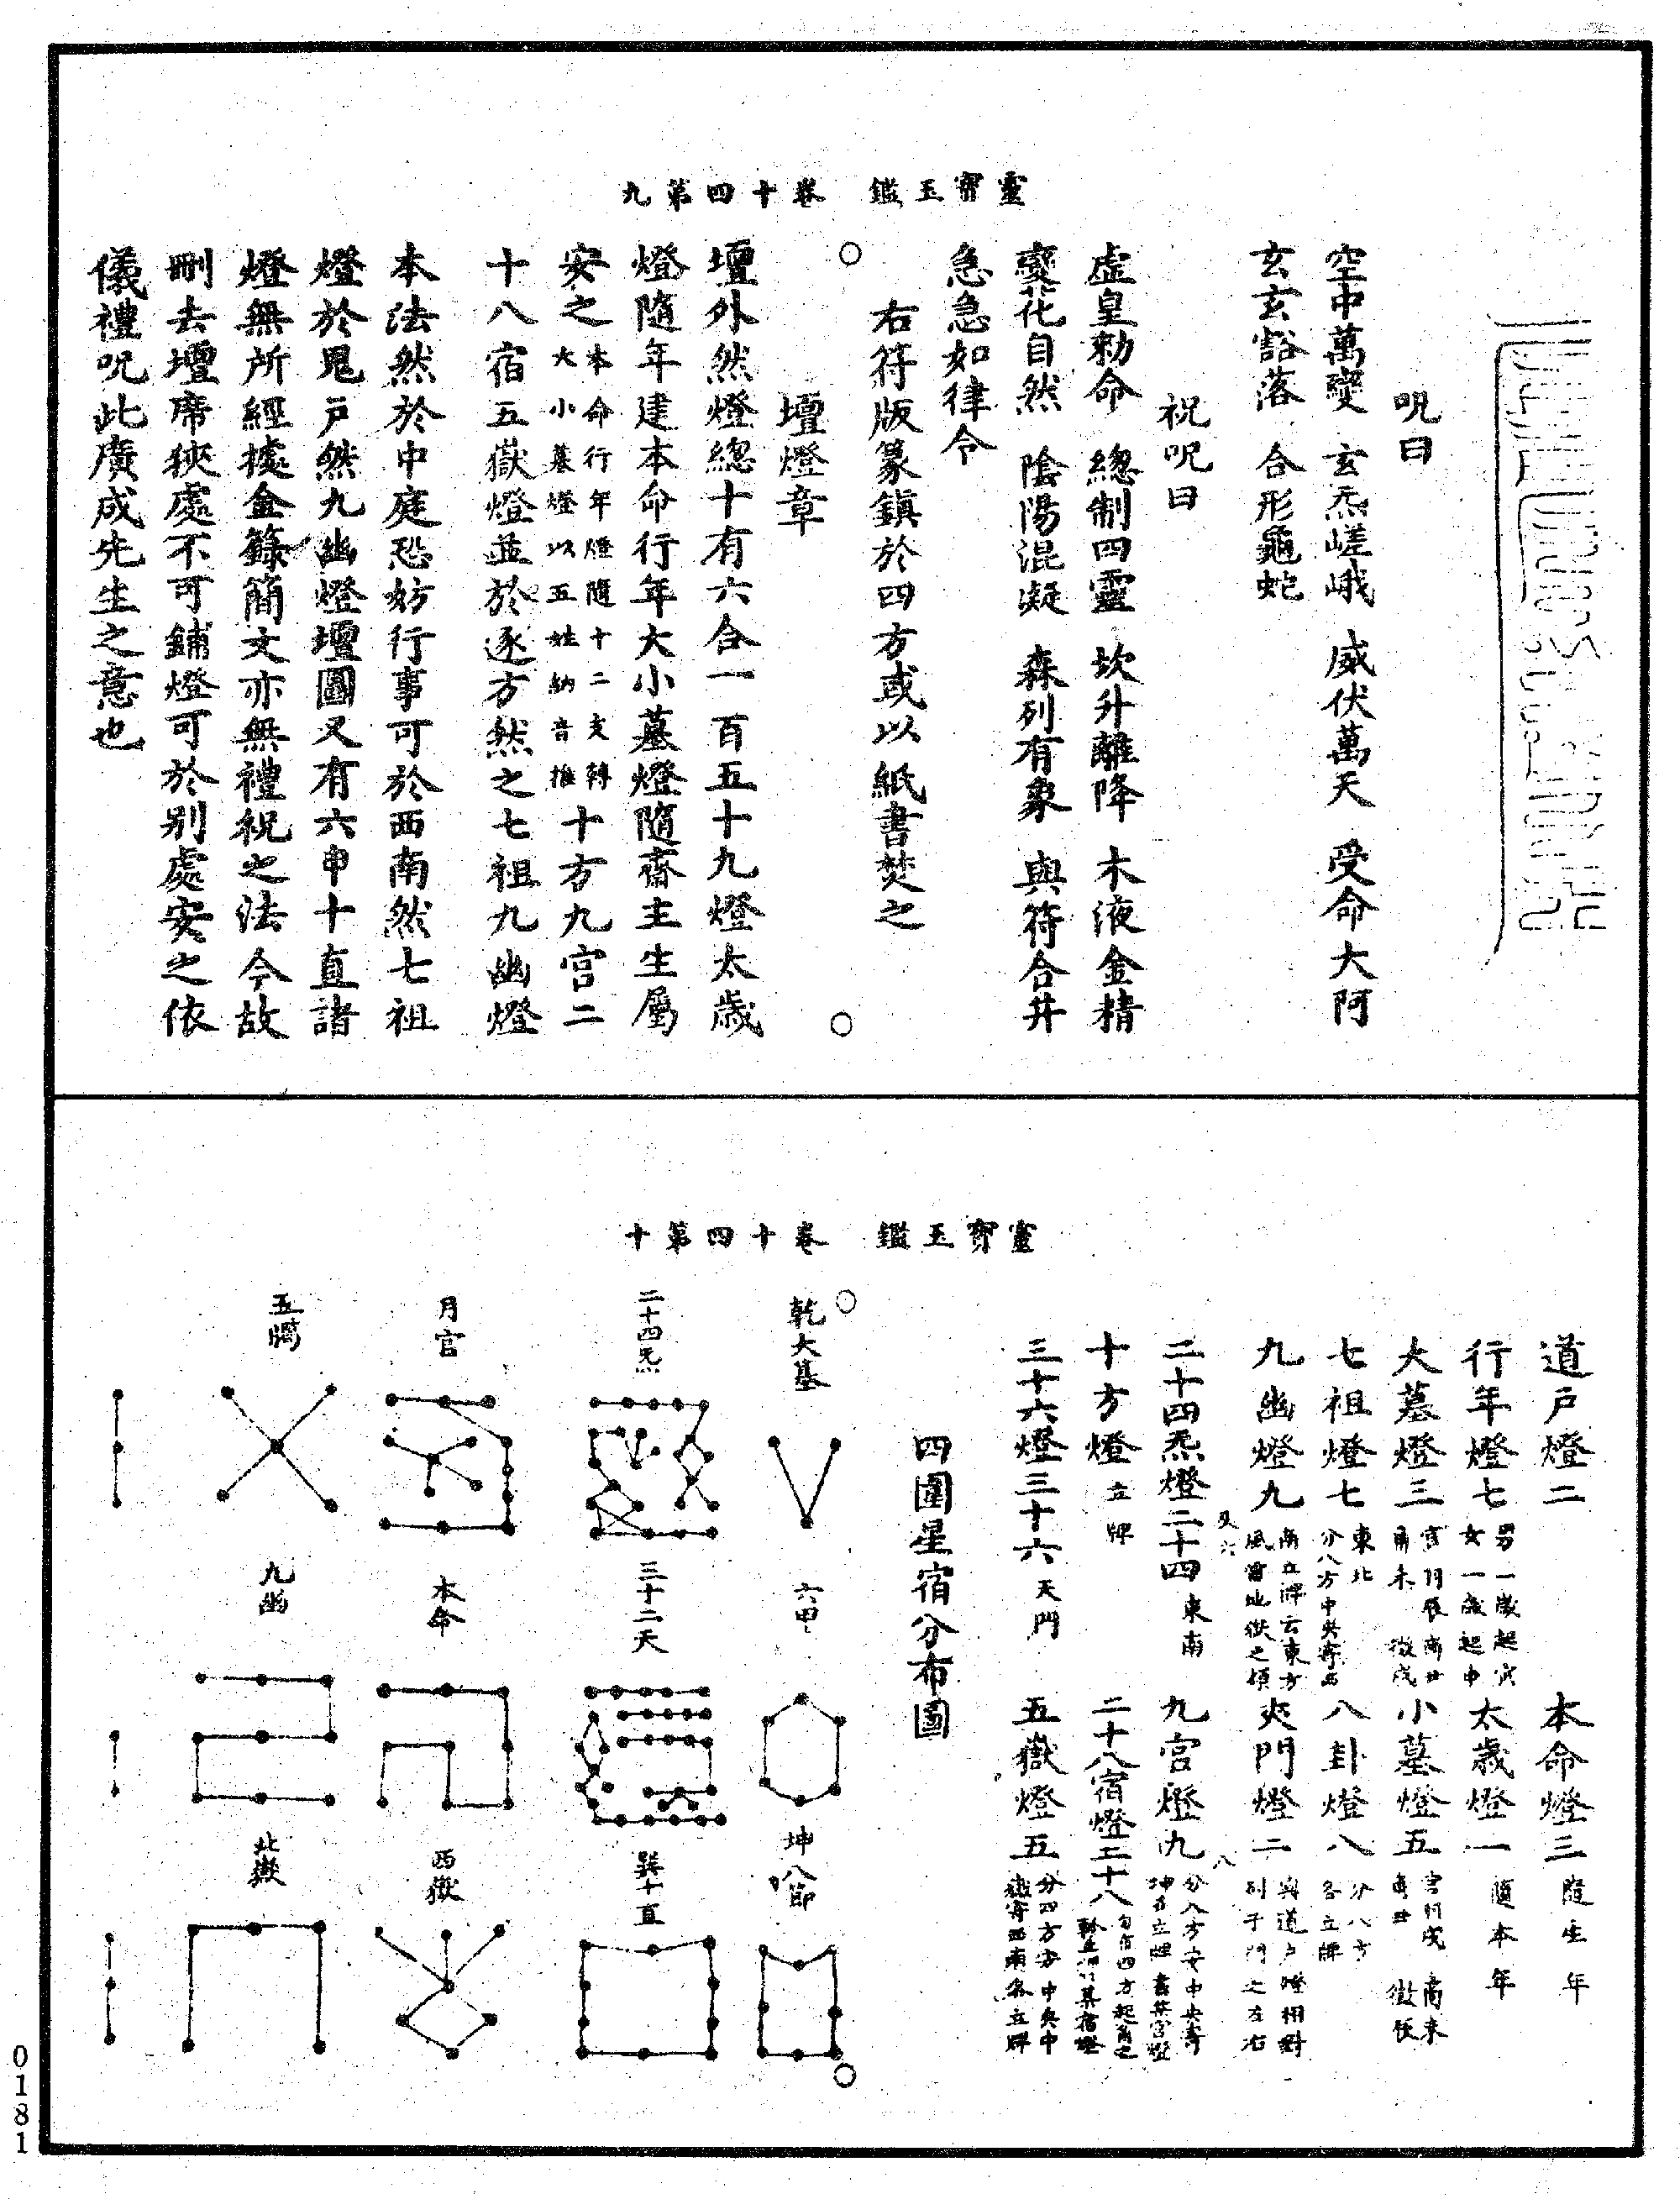 靈寶玉鑑　卷十四第九
呪曰
空中萬變　玄炁嵯峨　威伏萬天　受命大阿
玄玄豁落　合形龜蛇
祝呪曰
虛皇勑命　總制四靈　坎升離降　木液金精
變花自然　陰陽混凝　森列有象　與符合并
急急如律令
右符版篆鎮於四方或以紙書焚之
壇燈章
壇外然燈總十有六合一百五十九燈太歲
燈隨年建本命行年大小墓燈隨齋主生屬
安之本命行年燈隨十二支轉大小墓燈以五姓納音推十方九宮二
十八宿五嶽燈並於逐方然之七祖九幽燈
本法然於中庭恐妨行事可於西南然七祖
燈於鬼戶然九幽燈壇圖又有六申十直諸
燈無所經據金籙簡文亦無禮祝之法今故
刪去壇席狹處不可鋪燈可於別處安之依
儀禮呪此廣成先生之意也
靈寶玉鑑　卷十四第十
道戶燈二　本命燈三隨生年
行年燈七男一歲起寅女一歲起申　太歲燈一隨本年
大墓燈三　小墓燈五
七祖燈七東北　八卦燈八分八方各立牌
九幽燈九　夾門燈二與道戶燈相對列于門之左右
二十四炁燈二十四東南　九宮燈九
十方燈立牌　二十八宿燈二十八
三十六燈三十六天門　五嶽燈五
四圍星宿分布圖
乾大墓　六甲　坤八節
二十四炁　三十二天　巽十直
月宮　本命　西嶽
五 九幽　北嶽
0181